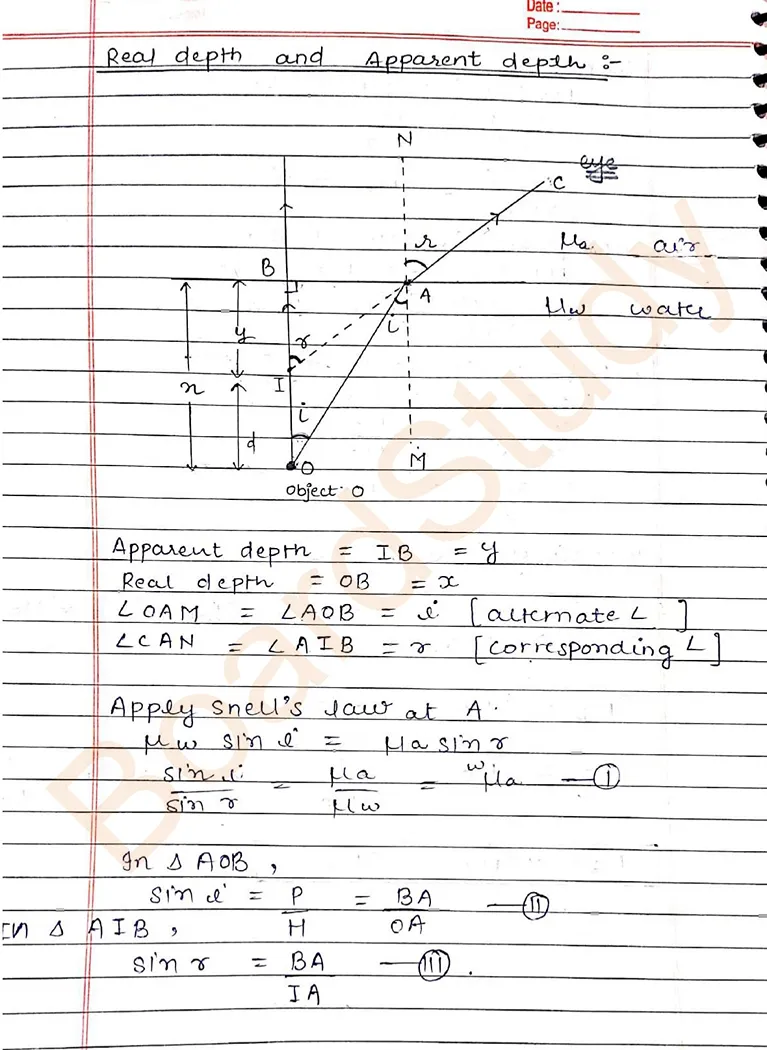 Date :
Page:
Real depth and Apparent depth :-
N
eye
C
r
μa air
B
A
μw water
i
y
r
x
I
i
d
O
M
object O
Apparent depth = IB = y
Real depth = OB = x
∠OAM = ∠AOB = i [alternate ∠ ]
∠CAN = ∠AIB = r [corresponding ∠]
Apply snell's law at A.
μw sin i = μa sin r
sin i / sin r = μa / μw = ʷμa —(I)
In Δ AOB ,
sin i = P / H = BA / OA —(II)
In Δ AIB ,
sin r = BA / IA —(III) .
BoardStudy